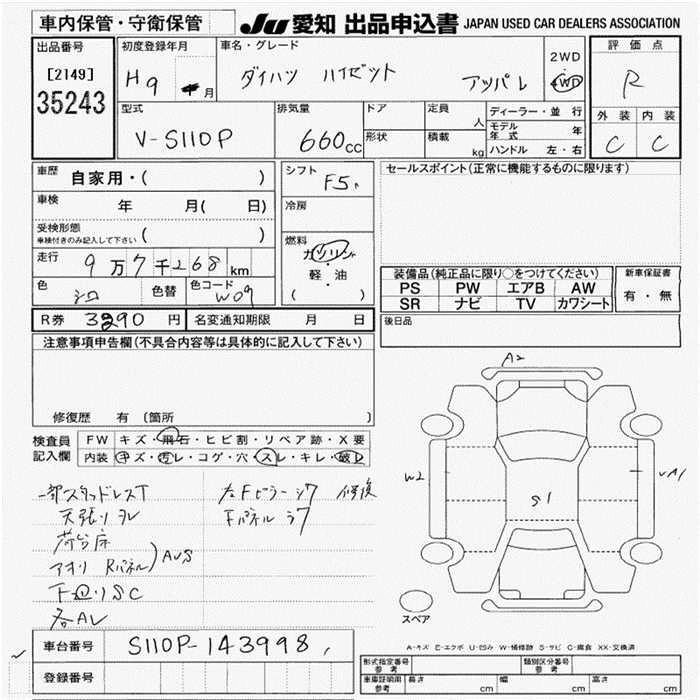 車内保管・守衛保管 JU 愛知 出品申込書 JAPAN USED CAR DEALERS ASSOCIATION
出品番号 初度登録年月 車名・グレード 2WD 評価点
[2149] H9 年 月 ダイハツ ハイゼット アツパレ 4WD R
35243 型式 排気量 ドア 定員 人 ディーラー・並行 外装 内装
V-S110P 660cc 形状 積載 kg モデル年式 年 C C
ハンドル 左・右
車歴 自家用・( ) シフト F5 セールスポイント(正常に機能するものに限ります)
車検 年 月( 日) 冷房
受検形態 ( )
車検付きのみ記入して下さい
燃料
走行 9万7千268km ガソリン
軽・油
( )
装備品(純正品に限り○をつけてください) 新車保証書
色 シロ 色替 色コード W09 PS PW エアB AW 有・無
SR ナビ TV カワシート
R券 3290円 名変通知期限 月 日 後日品
注意事項申告欄(不具合内容等は具体的に記入して下さい)
修復歴 有 (箇所 )
検査員 FW キズ・飛石・ヒビ割・リペア跡・X要
記入欄 内装 キズ・汚レ・コゲ・穴・スレ・キレ・破レ
一部スタッドレスT 左Fピラーシワ 修復
天張りヨレ Fパネルシワ
荷台床
アオリ Rパネル) AUS
下廻りSC
各AU
A2
W2
S1
A1
スペア
車台番号 S110P-143998
登録番号
A-キズ E-エクボ U-凹み W-補修跡 S-サビ C-腐食 XX-交換済
形式指定番号 参考 類別区分番号 参考
車庫証明用 参考 長さ cm 幅 cm 高さ cm